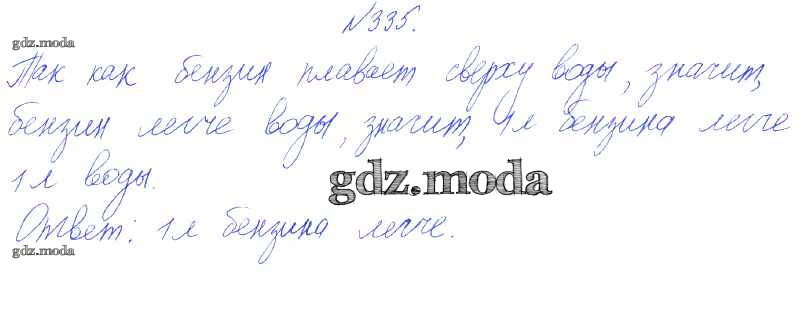 №335.
gdz.moda
Так как бензин плавает сверху воды, значит,
бензин легче воды, значит, 1л бензина легче
1л воды.
gdz.moda
Ответ: 1л бензина легче.
gdz.moda